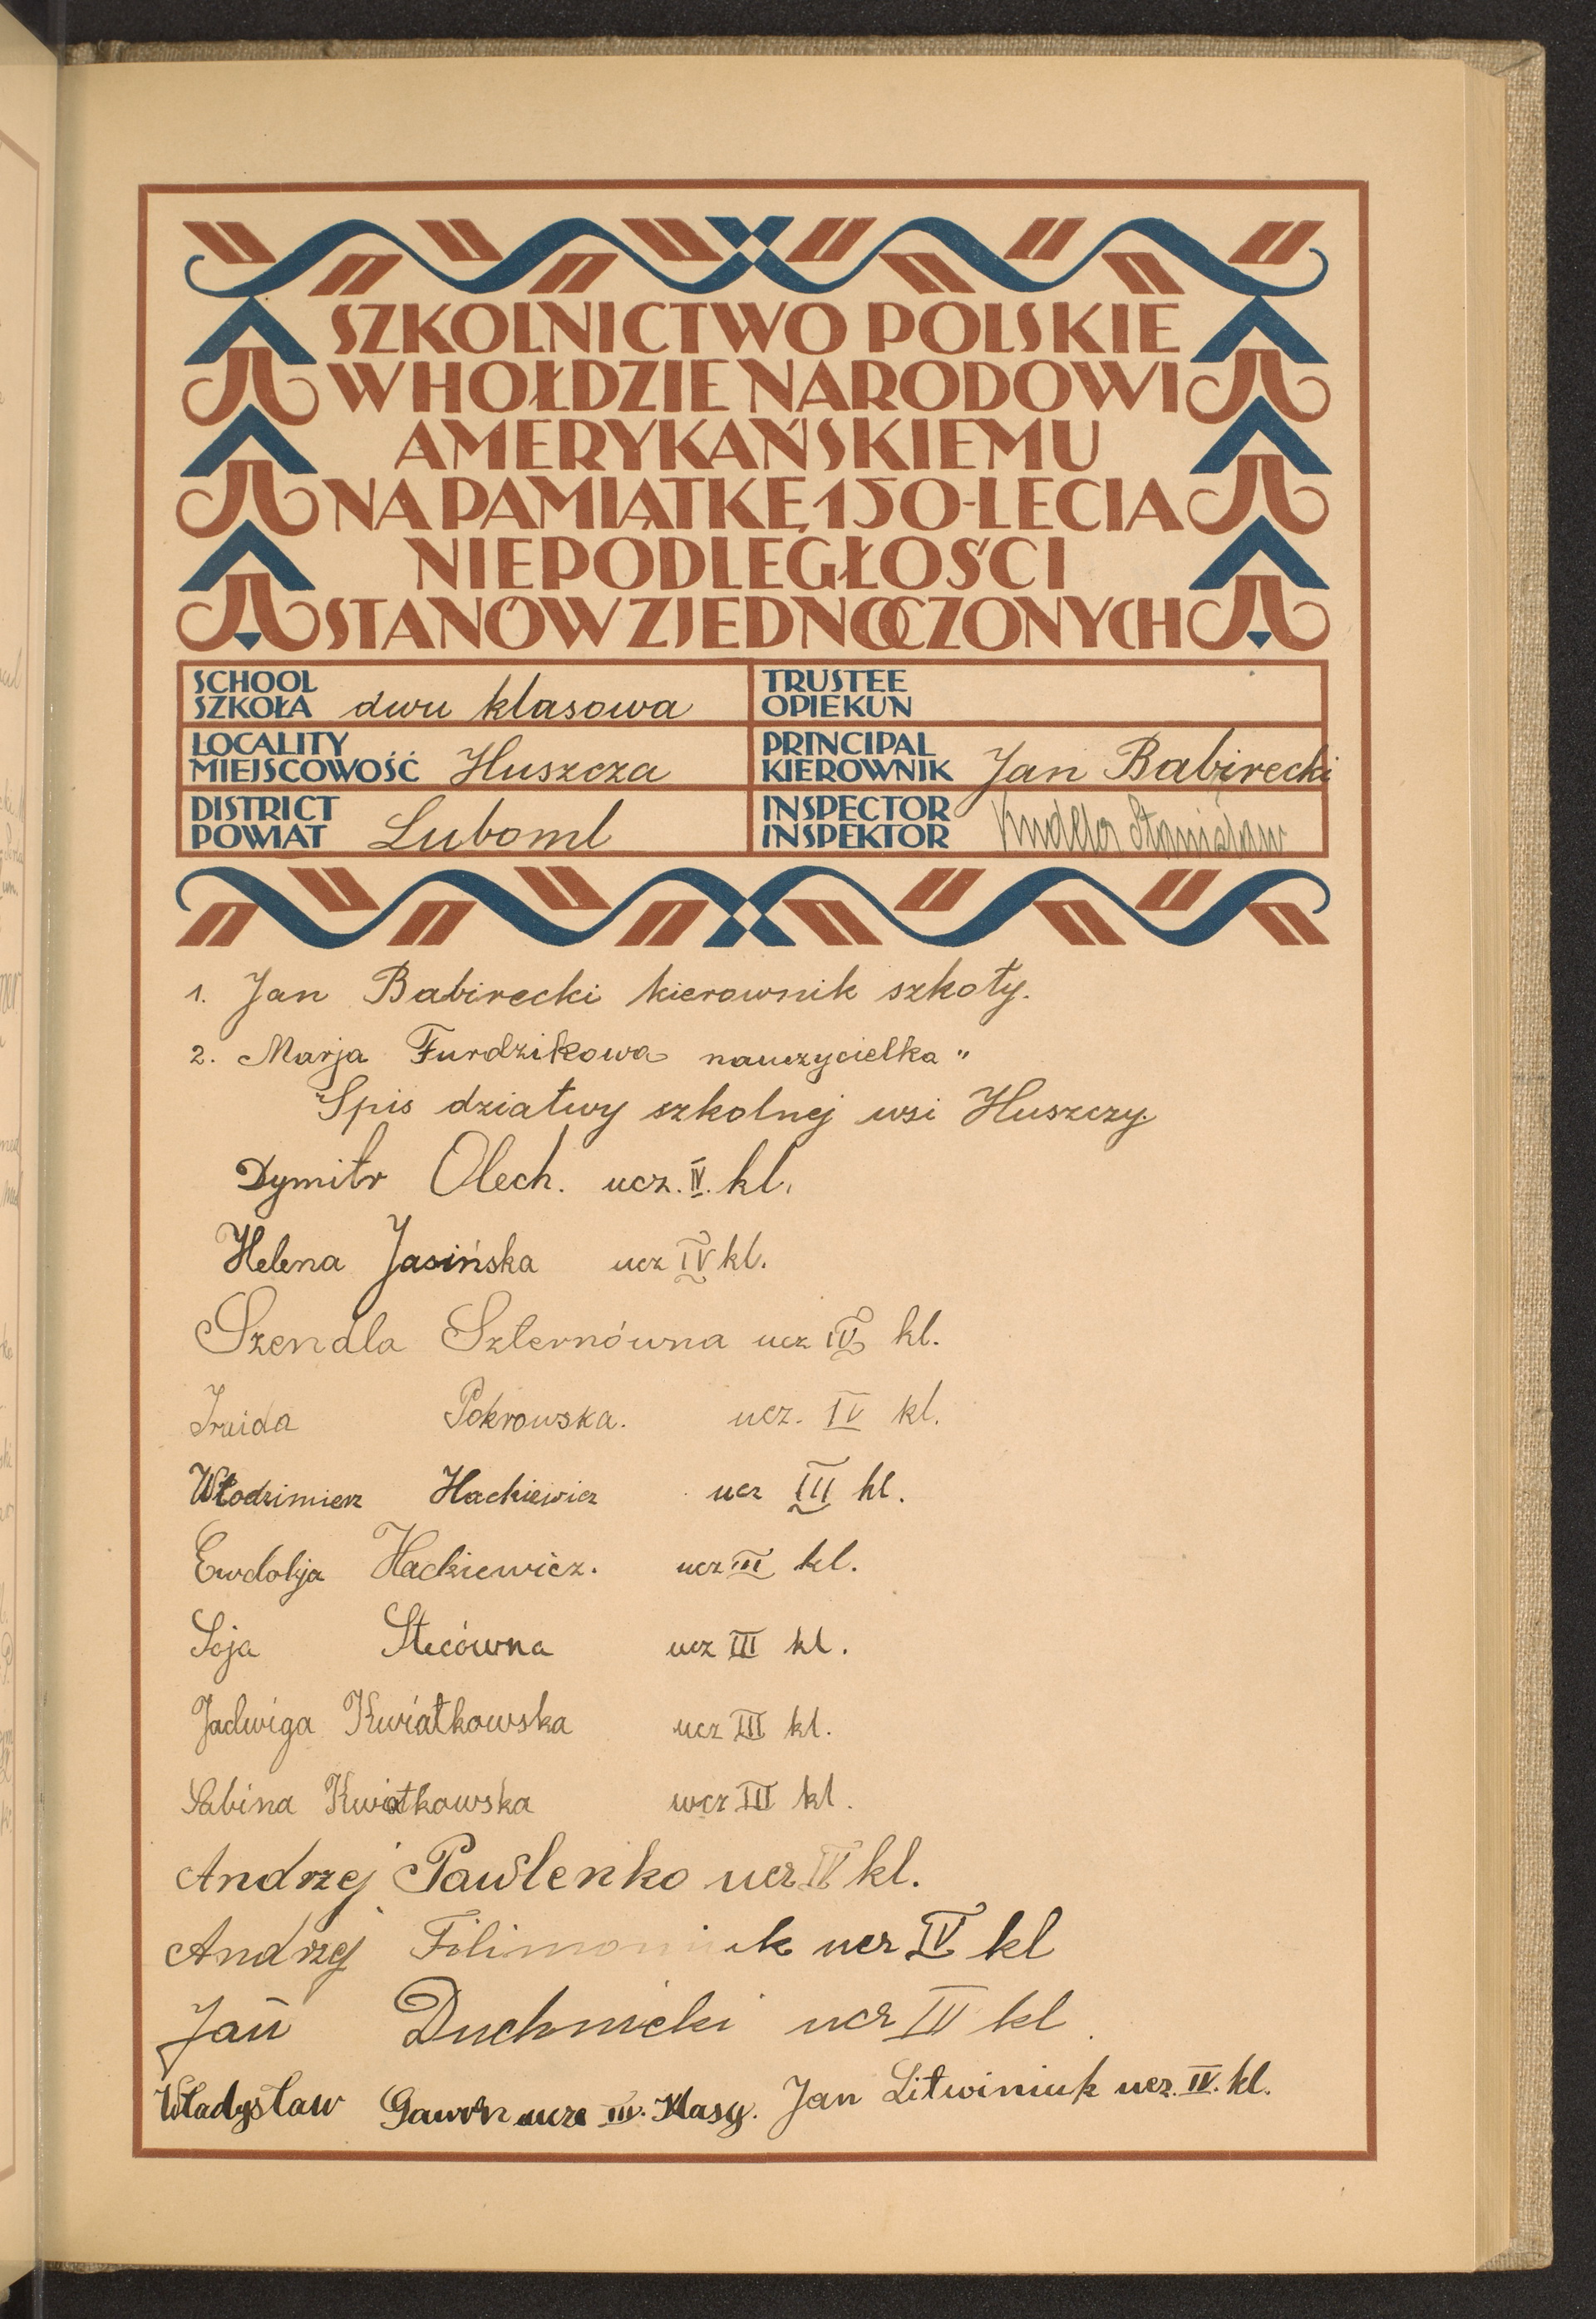 SZKOLNICTWO POLSKIE
W HOŁDZIE NARODOWI
AMERYKAŃSKIEMU
NA PAMIĄTKĘ 150-LECIA
NIEPODLEGŁOŚCI
STANÓW ZJEDNOCZONYCH
SCHOOL
SZKOŁA dwu klasowa
TRUSTEE
OPIEKUN
LOCALITY
MIEJSCOWOŚĆ Huszcza
PRINCIPAL
KIEROWNIK Jan Babirecki
DISTRICT
POWIAT Luboml
INSPECTOR
INSPEKTOR Stanisław
1. Jan Babirecki kierownik szkoły.
2. Marja Furdzikowa nauczycielka "
Spis dziatwy szkolnej wsi Huszczy.
Dymitr Olech. ucz. IV. kl.
Helena Jasińska ucz IV kl.
Szendla Szternówna ucz IV kl.
Iraida Pokrowska. ucz. IV kl.
Włodzimierz Hackiewicz ucz III kl.
Ewdokja Hackiewicz. ucz III kl.
Soja Stecówna ucz III kl.
Jadwiga Kwiatkowska ucz III kl.
Sabina Kwiatkowska ucz III kl.
Andrzej Pawlenko ucz IV kl.
Andrzej Filimoniuk ucz IV kl
Jan Duchnicki ucz III kl
Władysław ucze III. Klasy. Jan Litwiniuk ucz. IV. kl.